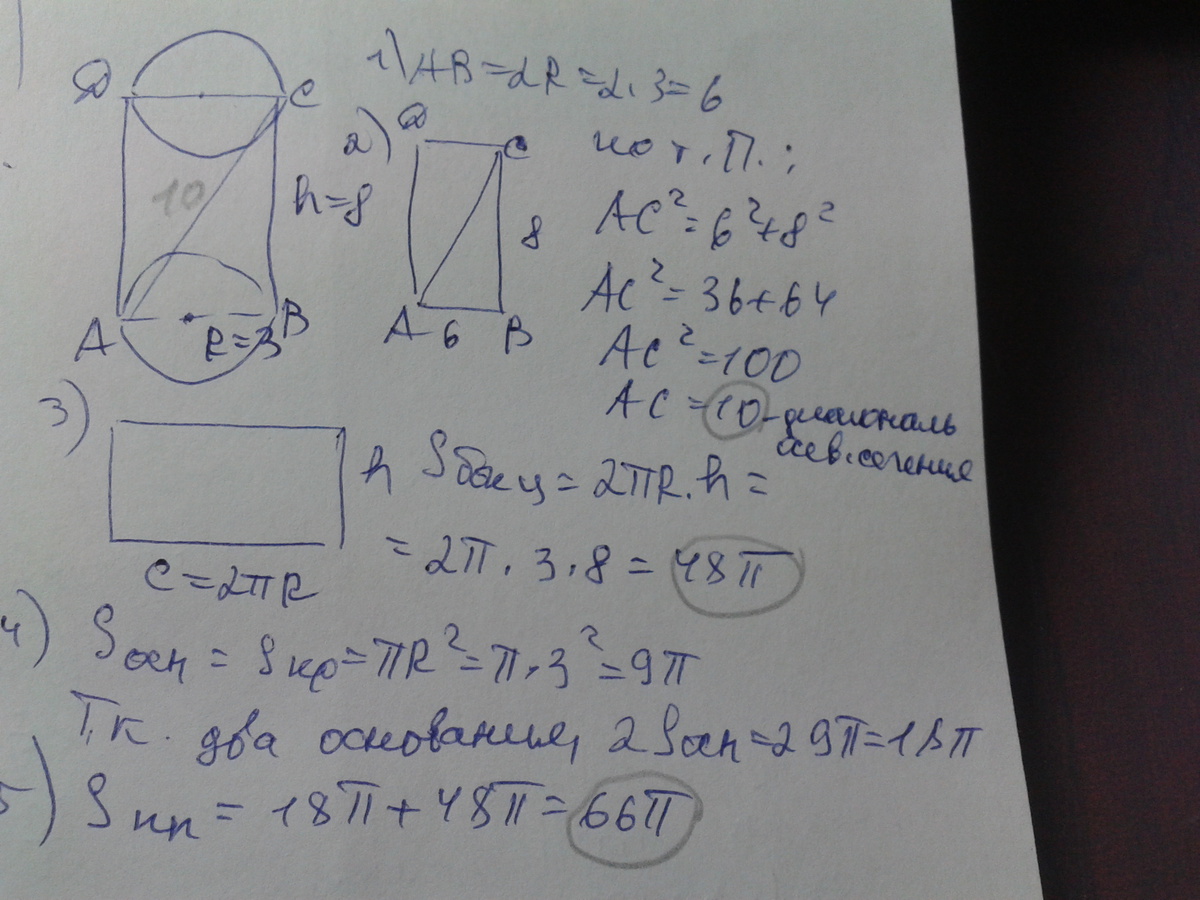 D
C
10
h=8
A
B
R=3
1) AB=2R=2·3=6
2)
D
C
8
A 6 B
по т. П.:
AC²=6²+8²
AC²=36+64
AC²=100
AC=10-диагональ
осев.сечения
3)
h
C=2πR
Sбок ц=2πR·h=
=2π·3·8=48π
4) Sосн=Sкр=πR²=π·3²=9π
Т.к. два основания, 2Sосн=2 9π=18π
5) Sпп=18π+48π=66π